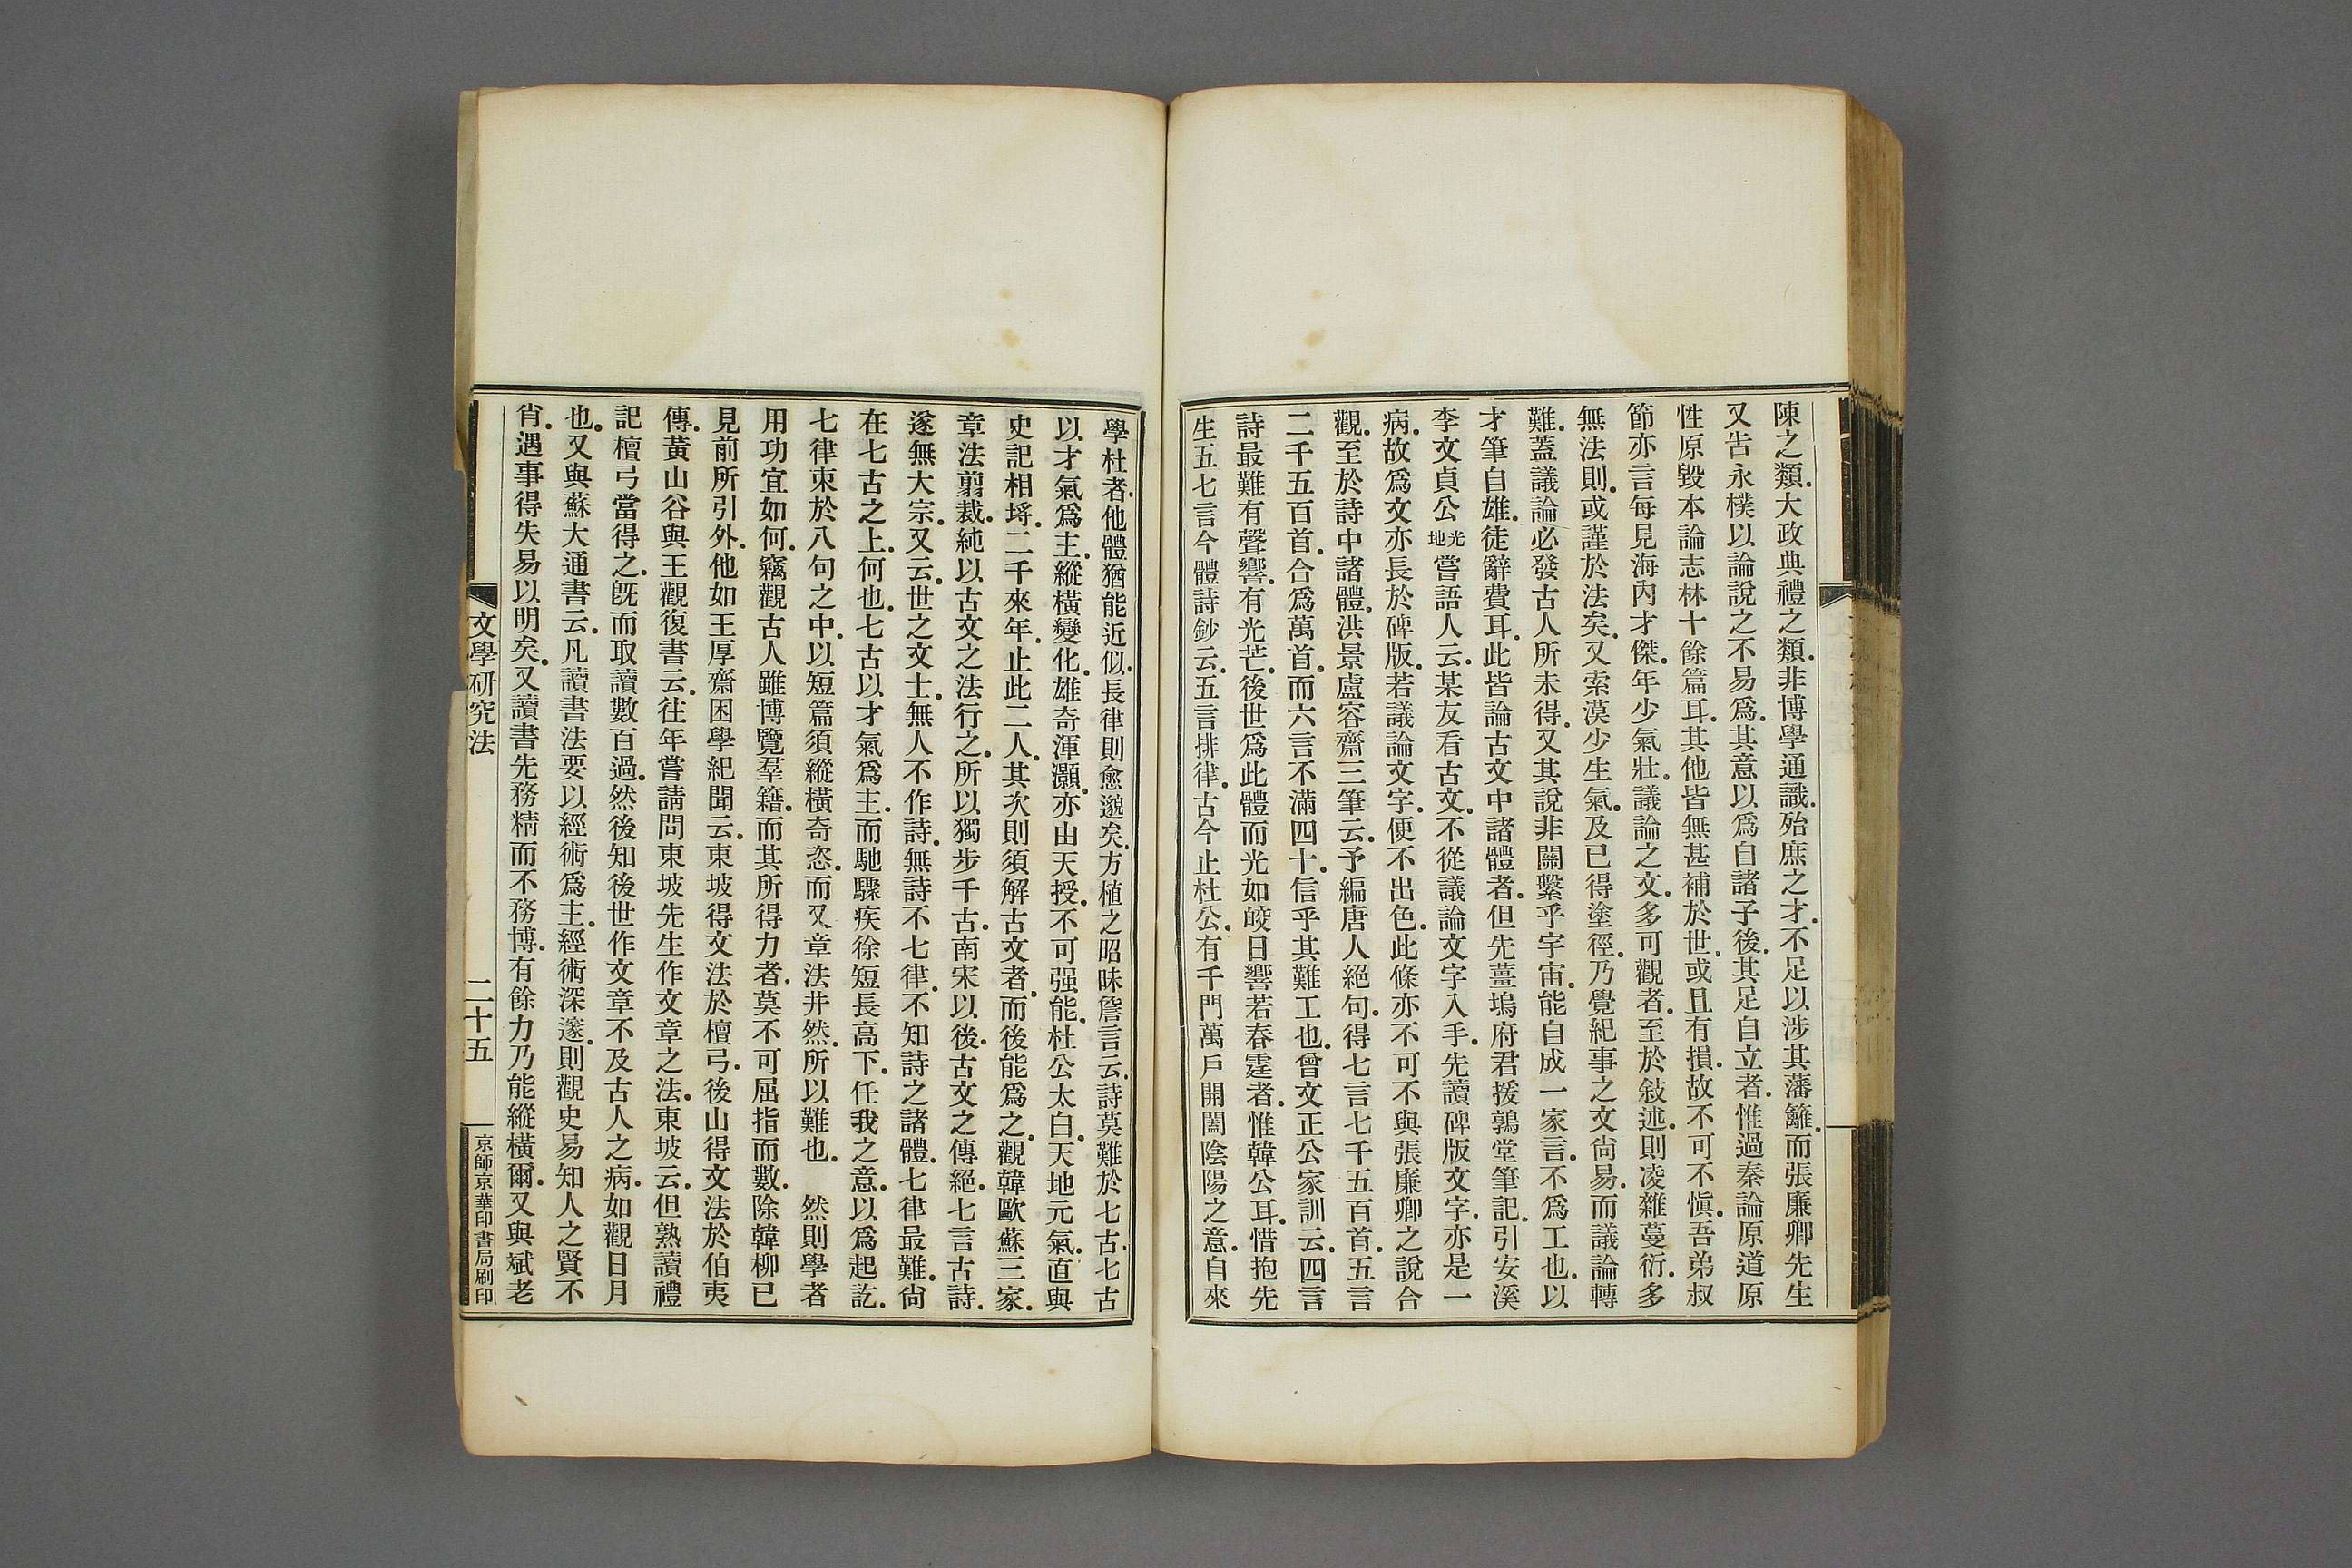 陳之類.大政典禮之類.非博學通識.殆庶之才.不足以涉其藩籬.而張廉卿先生
又告永樸以論說之不易爲.其意以爲自諸子後.其足自立者.惟過秦論原道原
性原毀本論志林十餘篇耳.其他皆無甚補於世.或且有損.故不可不愼.吾弟叔
節亦言每見海內才傑.年少氣壯.議論之文.多可觀者.至於敍述.則凌雜蔓衍.多
無法則.或謹於法矣.又索漠少生氣.及已得塗徑.乃覺紀事之文尙易.而議論轉
難.蓋議論必發古人所未得.又其說非關繫乎宇宙.能自成一家言.不爲工也.以
才筆自雄.徒辭費耳.此皆論古文中諸體者.但先薑塢府君援鶉堂筆記.引安溪
李文貞公光地嘗語人云.某友看古文.不從議論文字入手.先讀碑版文字.亦是一
病.故爲文亦長於碑版.若議論文字.便不出色.此條亦不可不與張廉卿之說合
觀.至於詩中諸體.洪景盧容齋三筆云.予編唐人絕句.得七言七千五百首.五言
二千五百首.合爲萬首.而六言不滿四十.信乎其難工也.曾文正公家訓云.四言
詩最難有聲響.有光芒.後世爲此體而光如皎日響若春霆者.惟韓公耳.惜抱先
生五七言今體詩鈔云.五言排律.古今止杜公.有千門萬戶開闔陰陽之意.自來
學杜者.他體猶能近似.長律則愈邈矣.方植之昭昧詹言云.詩莫難於七古.七古
以才氣爲主.縱橫變化.雄奇渾灝.亦由天授.不可强能.杜公太白.天地元氣.直與
史記相埒.二千來年.止此二人.其次則須解古文者.而後能爲之.觀韓歐蘇三家.
章法翦裁.純以古文之法行之.所以獨步千古.南宋以後.古文之傳絕.七言古詩.
遂無大宗.又云.世之文士.無人不作詩.無詩不七律.不知詩之諸體.七律最難.尙
在七古之上.何也.七古以才氣爲主.而馳驟疾徐短長高下.任我之意.以爲起訖.
七律束於八句之中.以短篇須縱橫奇恣.而又章法井然.所以難也.　然則學者
用功宜如何.竊觀古人雖博覽羣籍.而其所得力者.莫不可屈指而數.除韓柳已
見前所引外.他如王厚齋困學紀聞云.東坡得文法於檀弓.後山得文法於伯夷
傳.黃山谷與王觀復書云.往年嘗請問東坡先生作文章之法.東坡云.但熟讀禮
記檀弓當得之.旣而取讀數百過.然後知後世作文章不及古人之病.如觀日月
也.又與蘇大通書云.凡讀書法要以經術爲主.經術深邃.則觀史易知人之賢不
肖.遇事得失易以明矣.又讀書先務精而不務博.有餘力乃能縱橫爾.又與斌老
文學研究法
二十五
京師京華印書局刷印